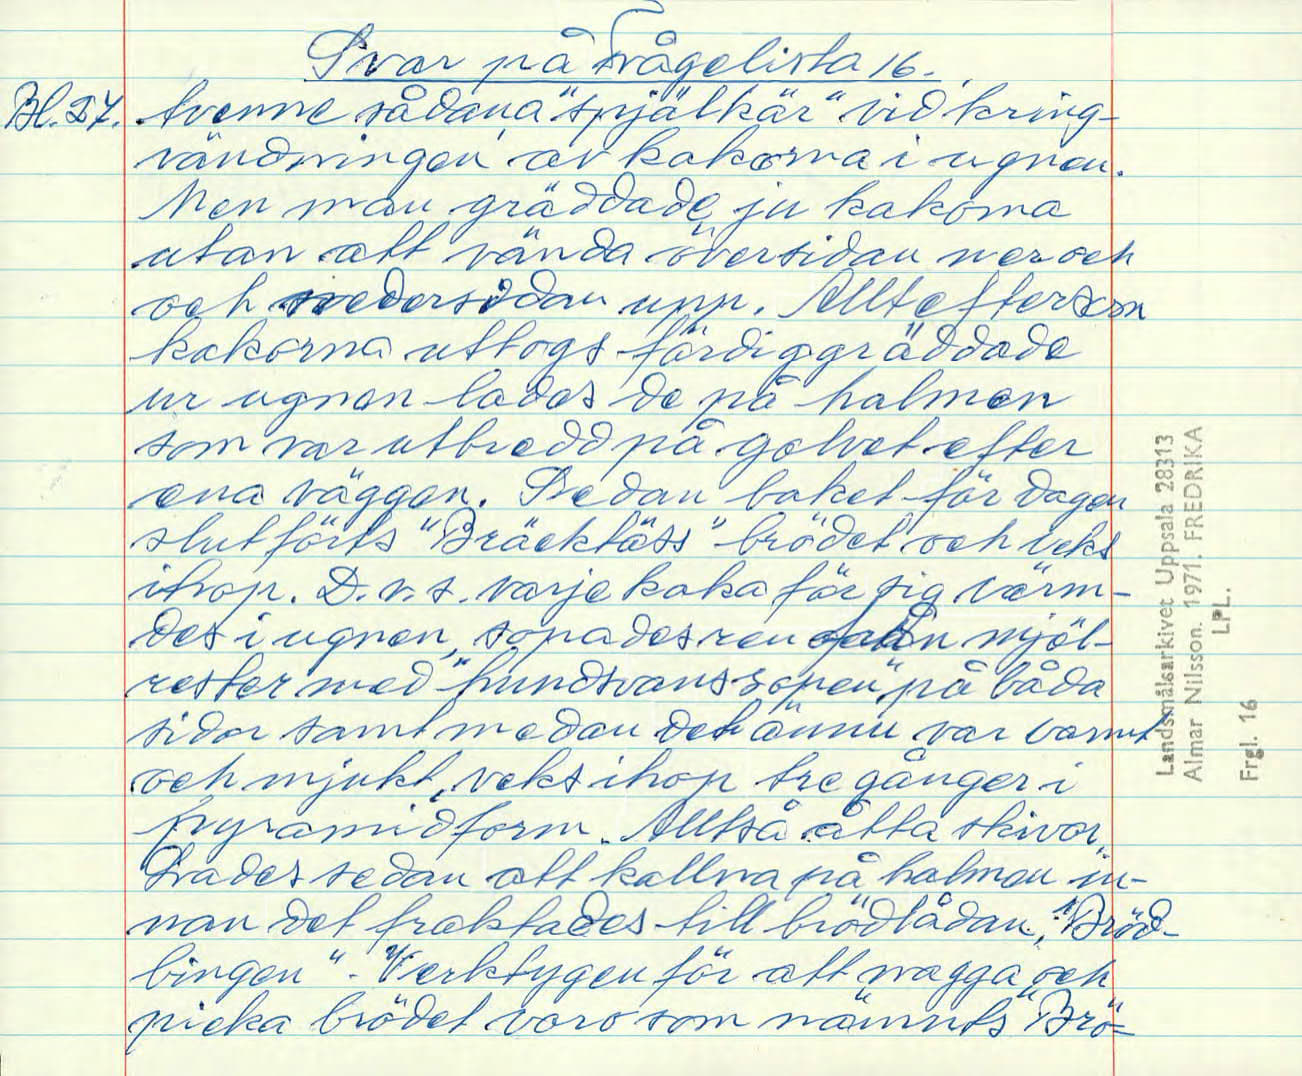 Svar på Frågelista 16.
Bl. 27. tvenne sådana "spjälkär" vid kring-
vändningen av kakorna i ugnen.
Men man gräddade ju kakorna
utan att vända översidan ner och
och nedersidan upp. Allteftersom
kakorna uttogs färdiggräddade
ur ugnen lades de på halmen
som var utbredd på golvet efter
ena väggen. Sedan baket för dagen
slutförts "Bräcktäss" brödet och veks
ihop. D.v.s. varje kaka för sig värm-
des i ugnen, sopades ren från mjöl-
rester med "hundsvanssopen" på båda
sidor samt medan det ännu var varmt
och mjukt, veks ihop tre gånger i
pyramidform. Alltså åtta skivor.
Lades sedan att kallna på halmen in-
nan det fraktades till brödlådan, "Bröd-
bingen". Verktygen för att nagga och
picka brödet voro som nämnts "Brö-
Landsmålsarkivet Uppsala 28313
Almar Nilsson. 1971. FREDRIKA
LPL.
Frgl. 16